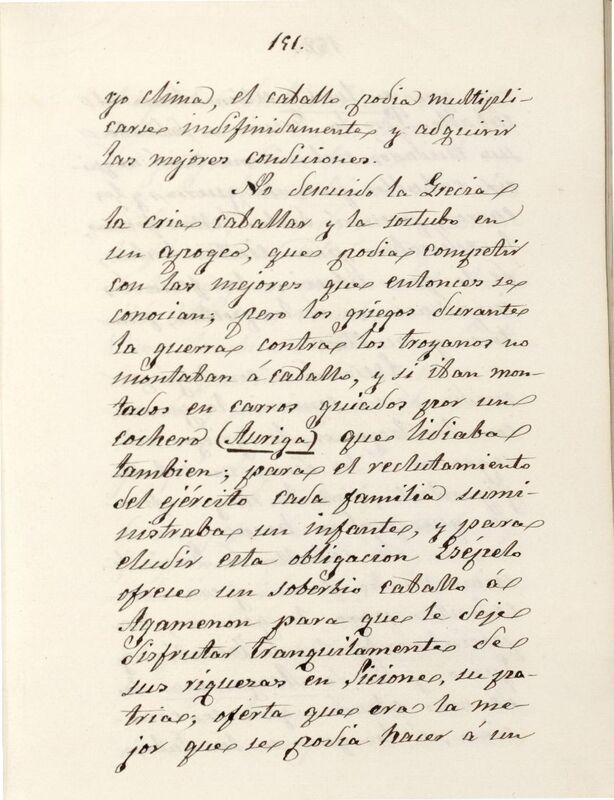 151.
yo clima, el caballo podia multipli-
carse indifinidamente y adquirir
las mejores condiciones.
No descuido la Grecia
la cria caballar y la sostubo en
un apogeo, que podia competir
con las mejores que entonces se
conocian; pero los griegos durante
la guerra contra los troyanos no
montaban á caballo, y si iban mon-
tados en carros guiados por un
cochero (Auriga) que lidiaba
tambien; para el reclutamiento
del ejército cada familia sumi-
nistraba un infante, y para
eludir esta obligacion Esépelo
ofrece un soberbio caballo á
Agamenon para que le deje
disfrutar tranquilamente de
sus riquezas en Sicione, su pa-
tria; oferta que era la me-
jor que se podia hacer á un